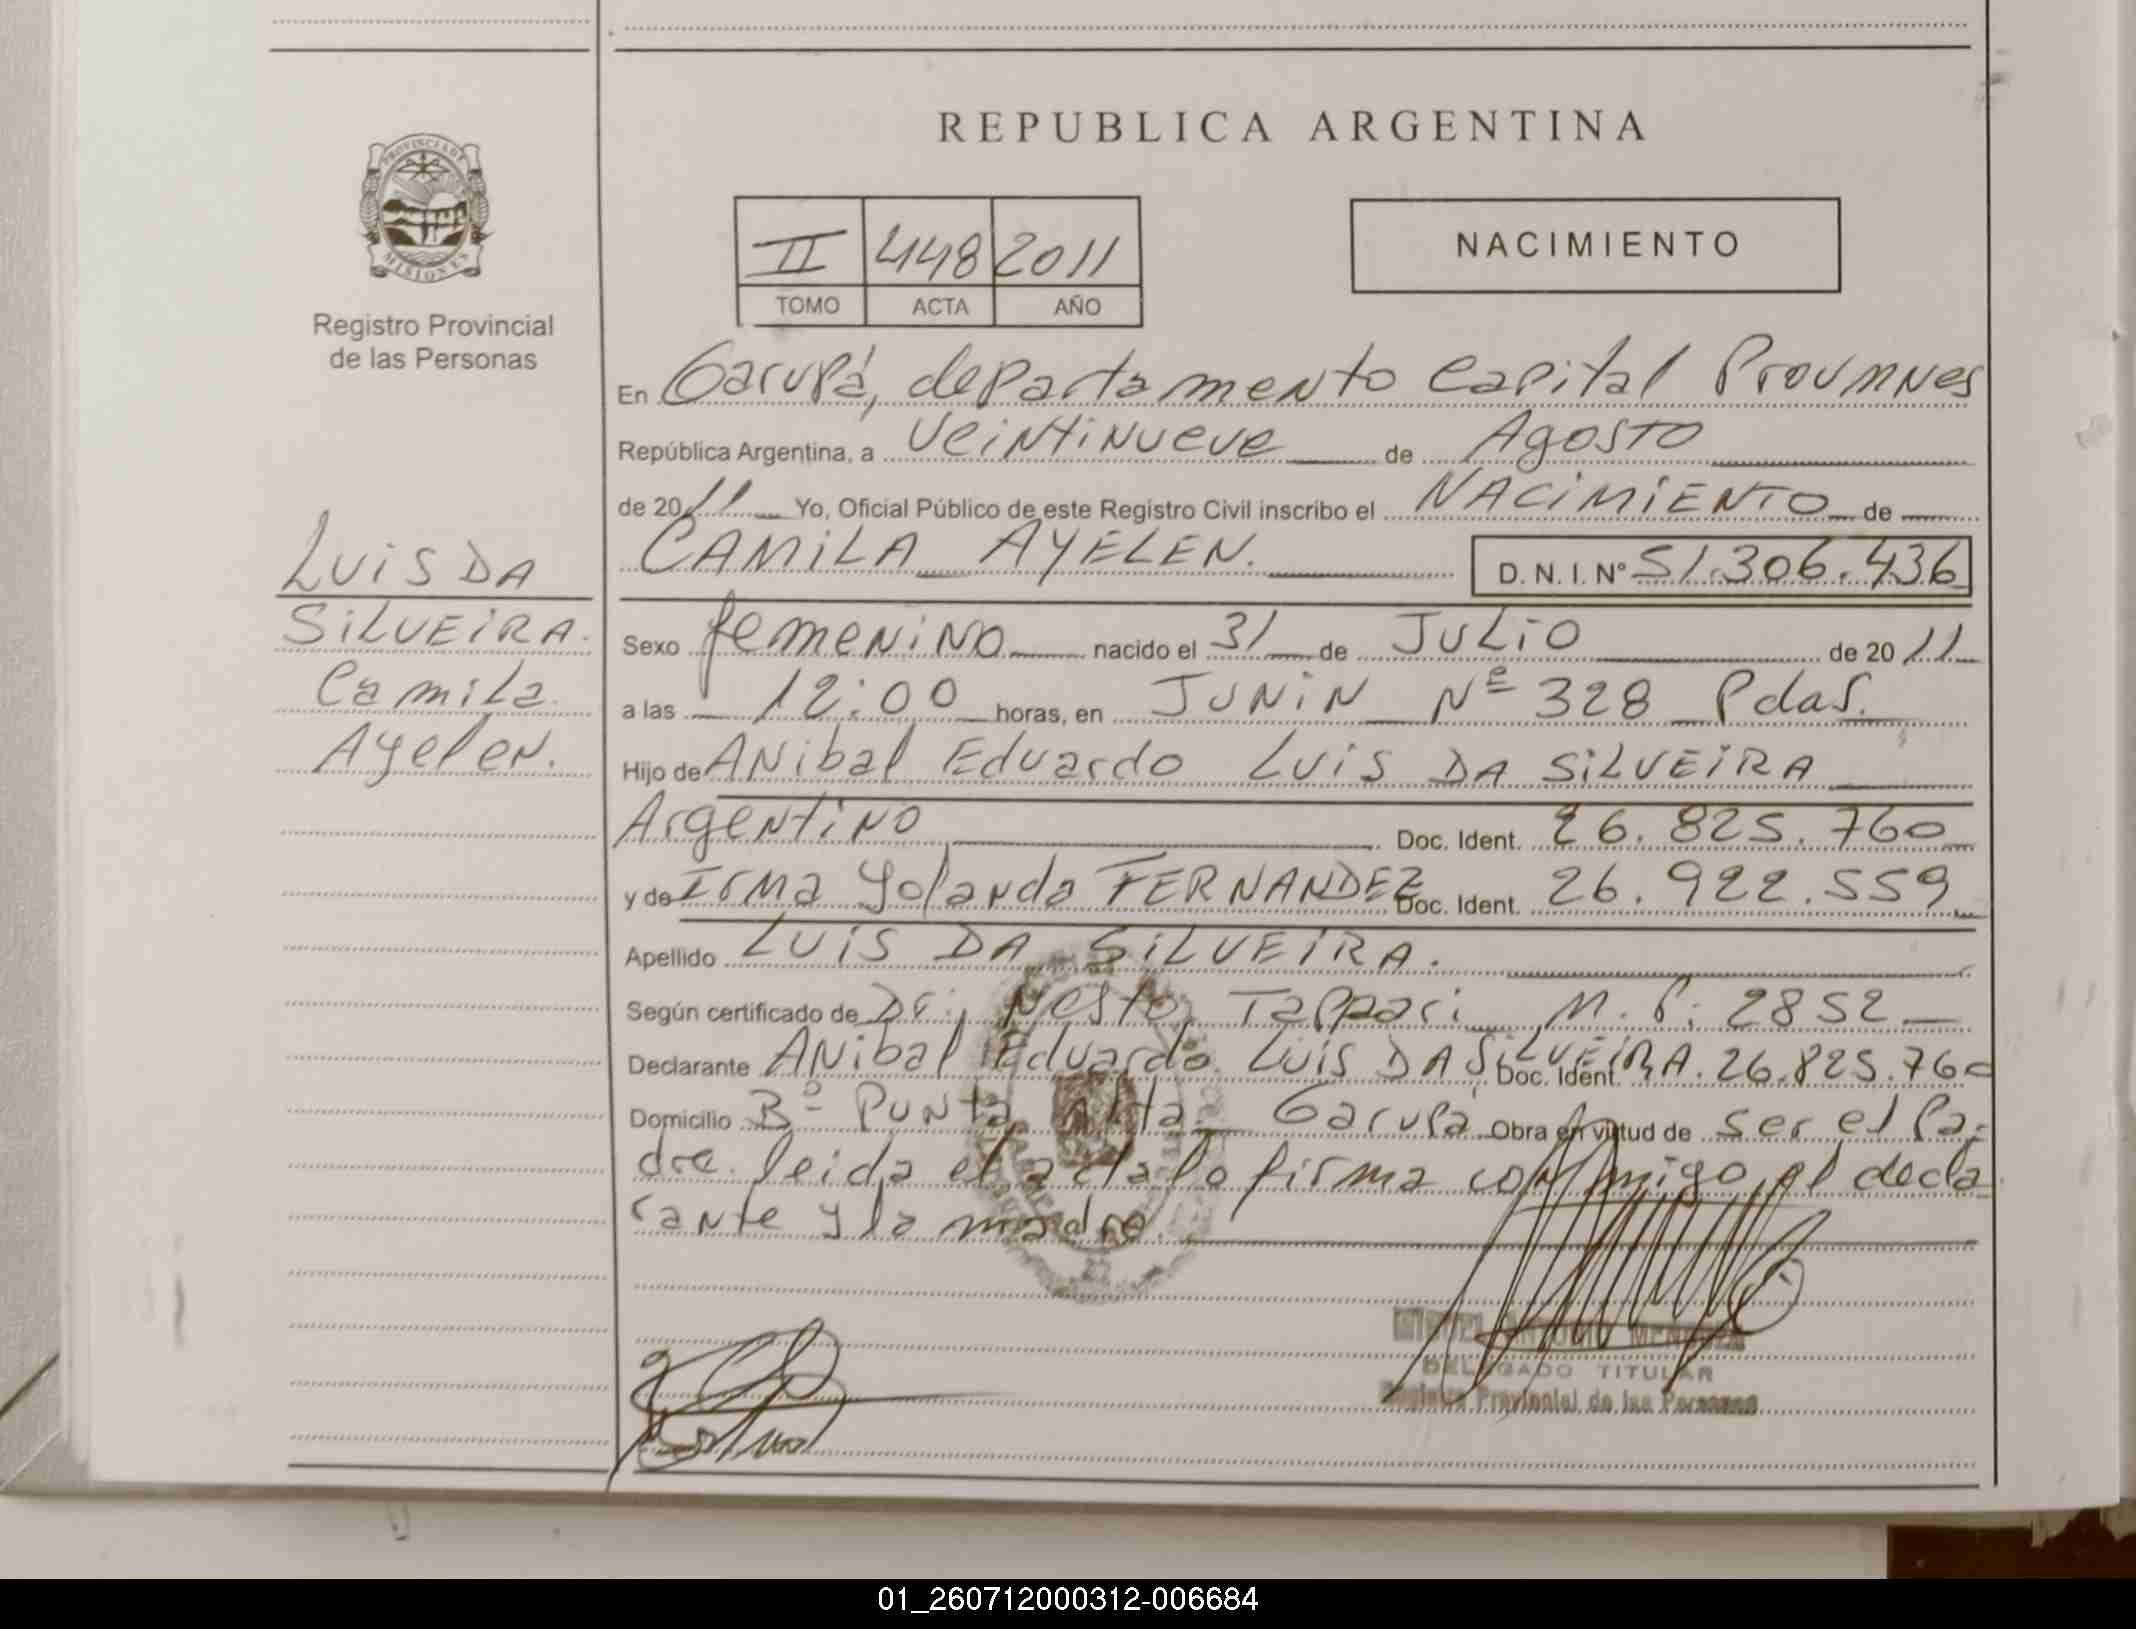 REPUBLICA ARGENTINA
PROVINCIA DE
MISIONES
Registro Provincial
de las Personas
II 448 2011
TOMO ACTA AÑO
NACIMIENTO
En Garupá, departamento Capital
República Argentina, a Veintinueve de Agosto
de 2011 Yo, Oficial Público de este Registro Civil inscribo el NACIMIENTO de
CAMILA AYELEN. D. N. I. Nº 51.306.436
LUIS DA
SILVEIRA.
Camila
Ayelen.
Sexo femenino nacido el 31 de JULIO de 2011
a las 12:00 horas, en JUNIN Nº 328 Pdas.
Hijo de Anibal Eduardo LUIS DA SILVEIRA
Argentino Doc. Ident. 26.825.760
y de Irma Yolanda FERNANDEZ Doc. Ident. 26.922.559
Apellido LUIS DA SILVEIRA.
Según certificado de Dr. Nestor M. P. 2852
Declarante Anibal Eduardo LUIS DA SILVEIRA. Doc. Ident. 26.825.760
Domicilio Bº Punta Alta Garupá Obra en virtud de ser el Pa-
dre. leida el acta lo firma conmigo el decla
rante y la madre.
DELEGADO TITULAR
Registro Provincial de las Personas
01_260712000312-006684